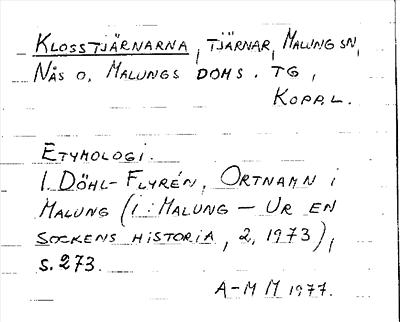 KLOSSTJÄRNARNA, TJÄRNAR, MALUNG SN,
NÅS O. MALUNGS DOMS. TG,
KOPP. L.
ETYMOLOGI.
I. DÖHL-FLYRÉN, ORTNAMN I
MALUNG (I: MALUNG - UR EN
SOCKENS HISTORIA, 2, 1973),
S. 273.
A-M M 1977.